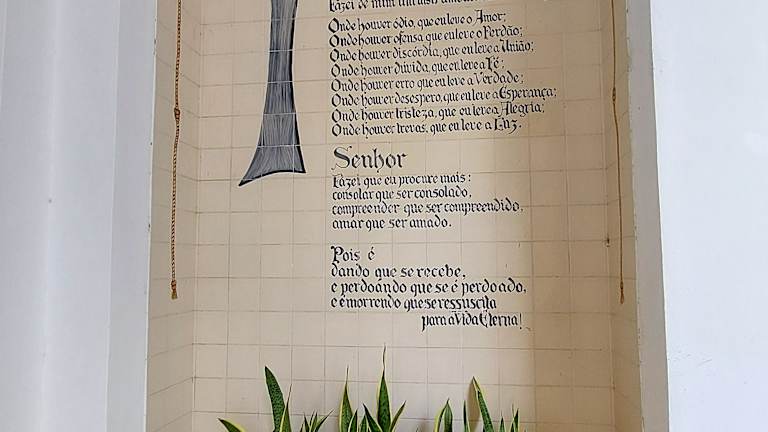 Fazei de mim um
Onde houver ódio, que eu leve o Amor;
Onde houver ofensa, que eu leve o Perdão;
Onde houver discórdia, que eu leve a União;
Onde houver dúvida, que eu leve a Fé;
Onde houver erro que eu leve a Verdade;
Onde houver desespero, que eu leve a Esperança;
Onde houver tristeza, que eu leve a Alegria;
Onde houver trevas, que eu leve a Luz.
Senhor
Fazei que eu procure mais:
consolar que ser consolado,
compreender que ser compreendido,
amar que ser amado.
Pois é
dando que se recebe,
e perdoando que se é perdoado,
e é morrendo que se ressuscita
para a Vida Eterna!